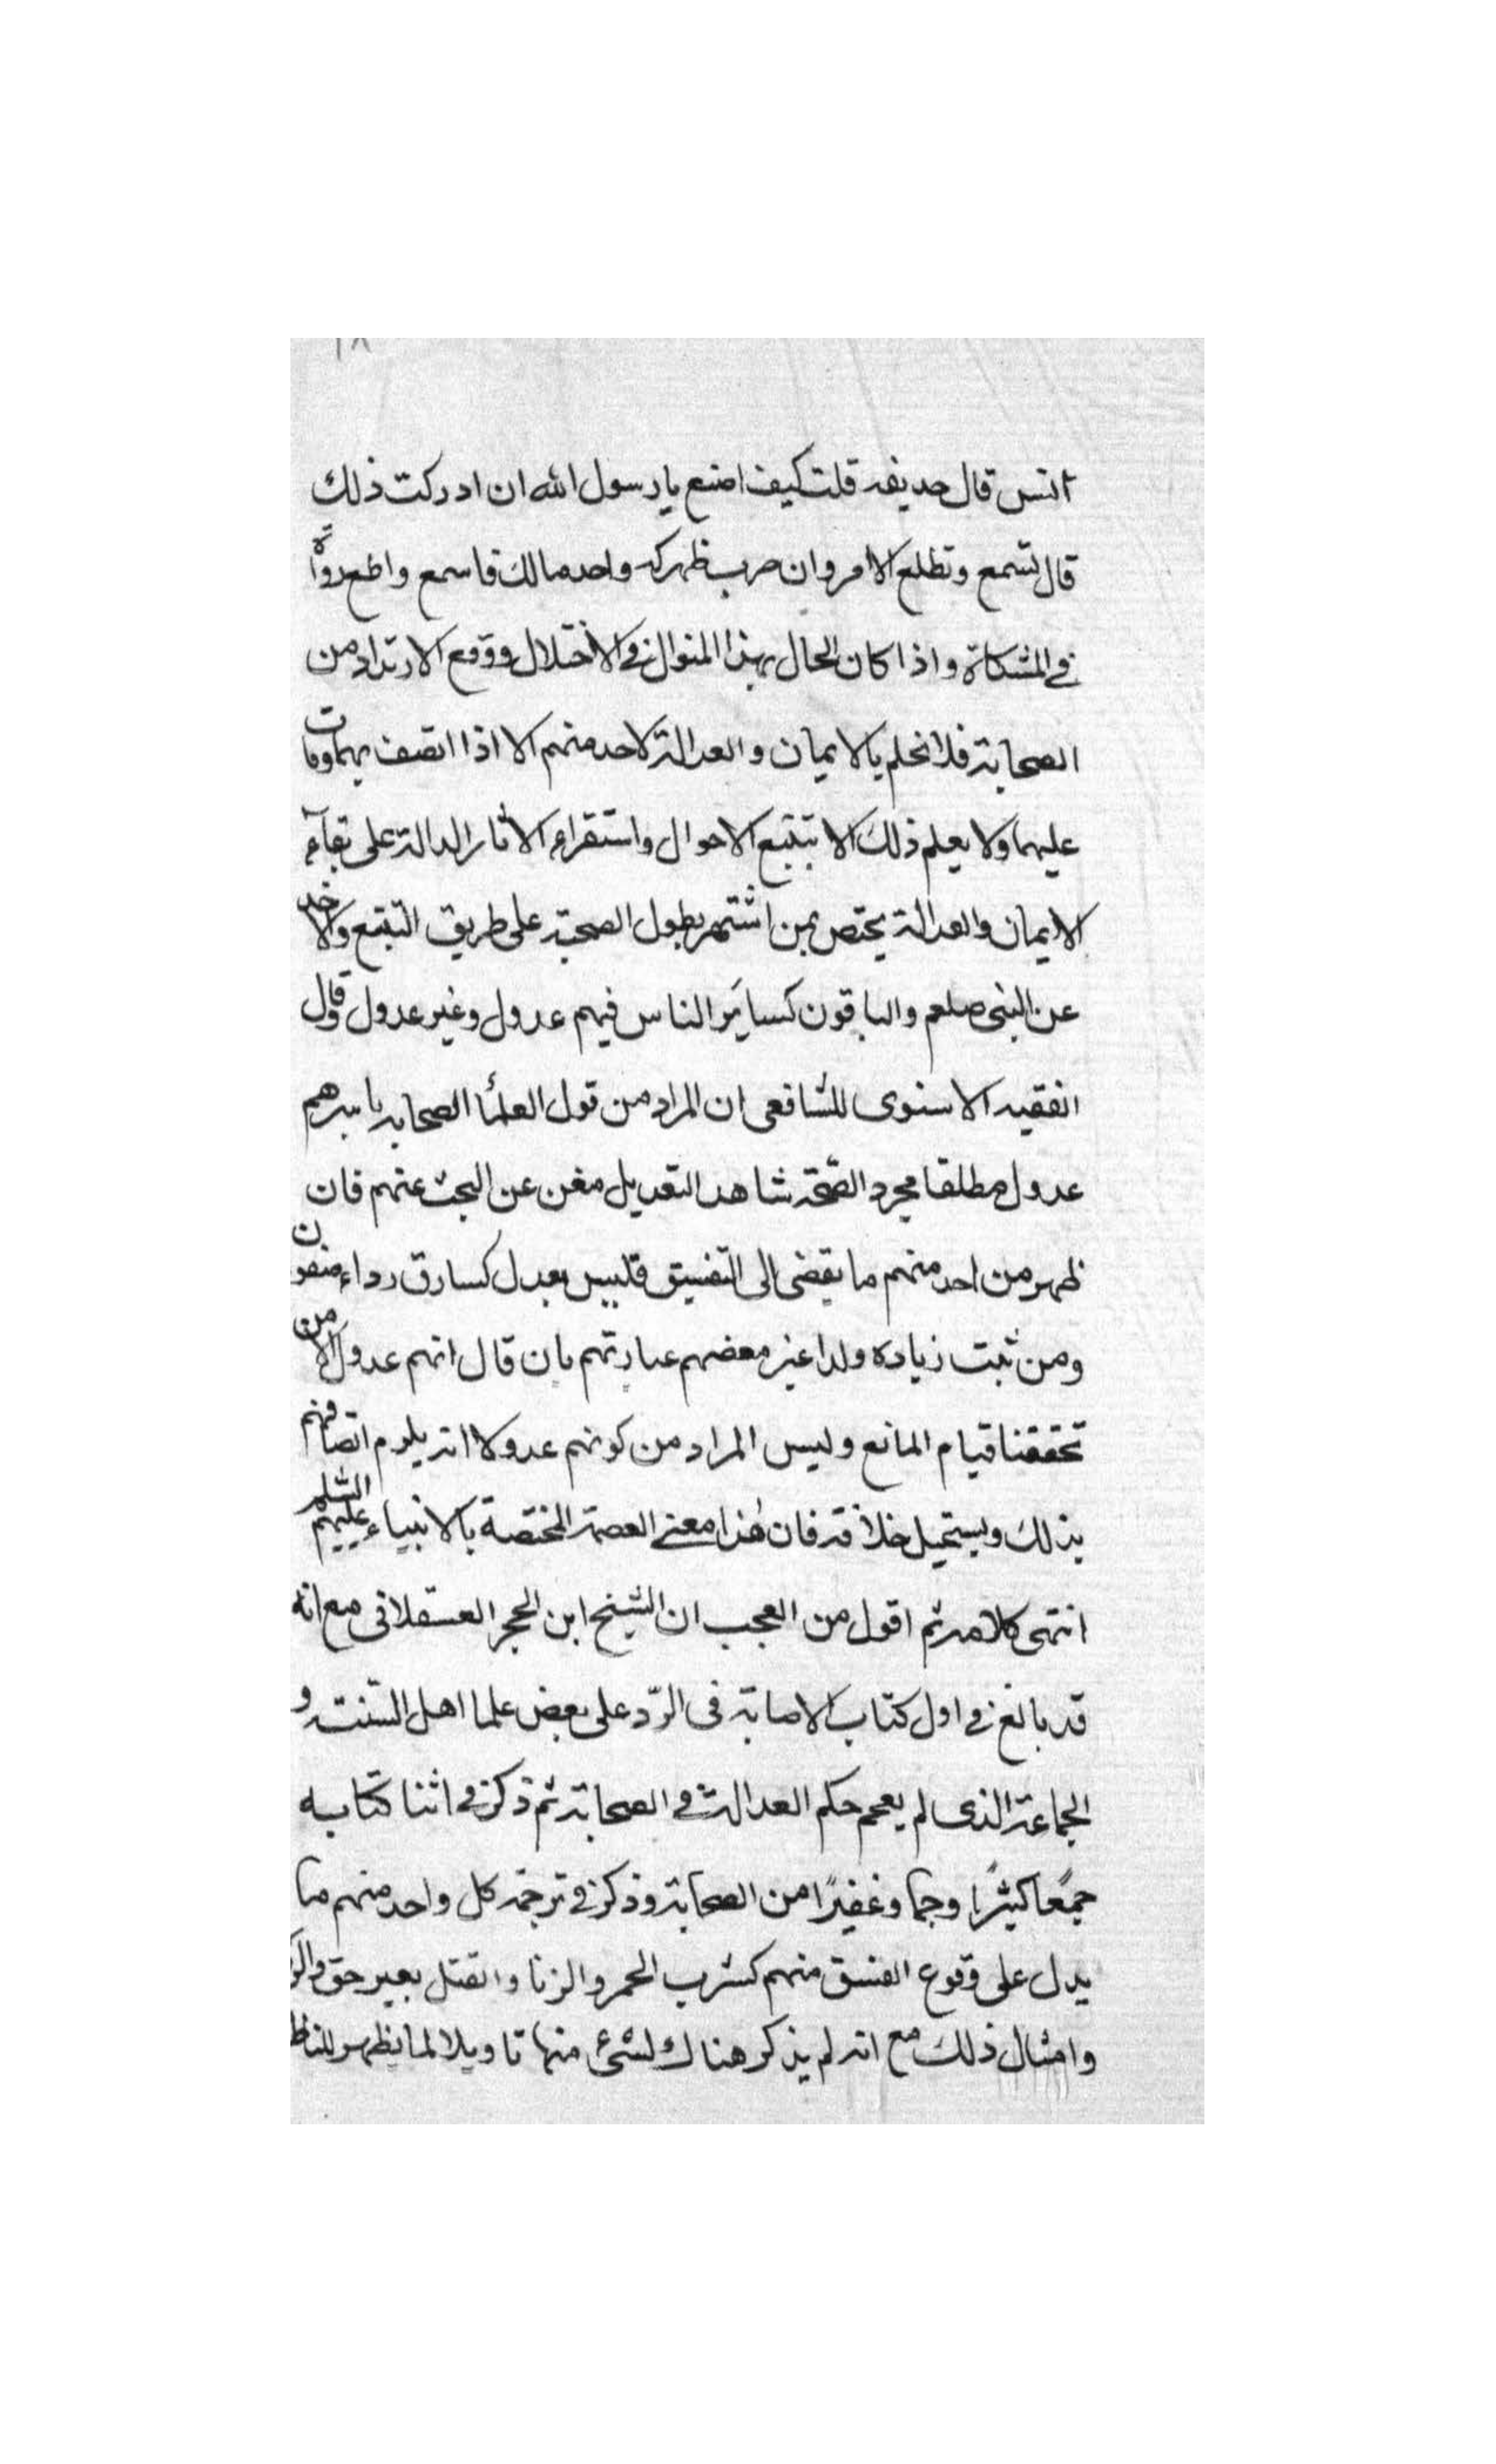 انس قال حذيفه قلت كيف اصنع يا رسول الله ان ادركت ذلك
قال تسمع وتطلع الامر وان ضرب ظهرك واحد مالك فاسمع واطع رواه
في المشكاة واذا كان الحال بهذا المنوال في الاختلال ووقوع الارتداد من
الصحابة فلا نحلم بالايمان والعدالة لاحد منهم الا اذا اتصف بهما ومات
عليهما ولا يعلم ذلك الا بتتبع الاحوال واستقراء الاثار الدالة على بقاء
الايمان والعدالة يختص بمن اشتهر بطول الصحبة على طريق التتبع والاخذ
عن النبي صلعم والباقون كسائر الناس فيهم عدول وغير عدول وقال
الفقيه الاسنوى للشافعى ان المراد من قول العلمأ الصحابه باسرهم
عدول مطلقا مجرد الصحة شاهد التعديل مغن عن البحث عنهم فان
ظهر من احد منهم ما يقضى الى التفسيق فليس بعدل كسارق رداء صفون
ومن ثبت زياده ولذا غير بعضهم عبارتهم بان قال انهم عدول الا من
تحققنا قيام المانع وليس المراد من كونهم عدولا انه يلزم اتصافهم
بذلك ويستحيل خلافه فان هذا معنى العصمة المختصة بالانبياء عليهم السلم
انتهى كلامه ثم اقول من العجب ان الشيخ ابن الحجر العسقلانى مع انه
قد بالغ في اول كتاب الاصابة فى الرّد على بعض علما اهل السّنت و
الجماعة الذى لم يعمم حكم العدالة في الصحابة ثم ذكر في اثنا كتابه
جمعًا كثيرًا وجما وغفيرًا من الصحابة وذكر في ترجمة كل واحد منهم ما
يدل على وقوع الفسق منهم كشرب الخمر والزنا والقتل بغير حق
وامثال ذلك مع انه لم يذكر هناك لشئ منها تاويلا لما يظهر